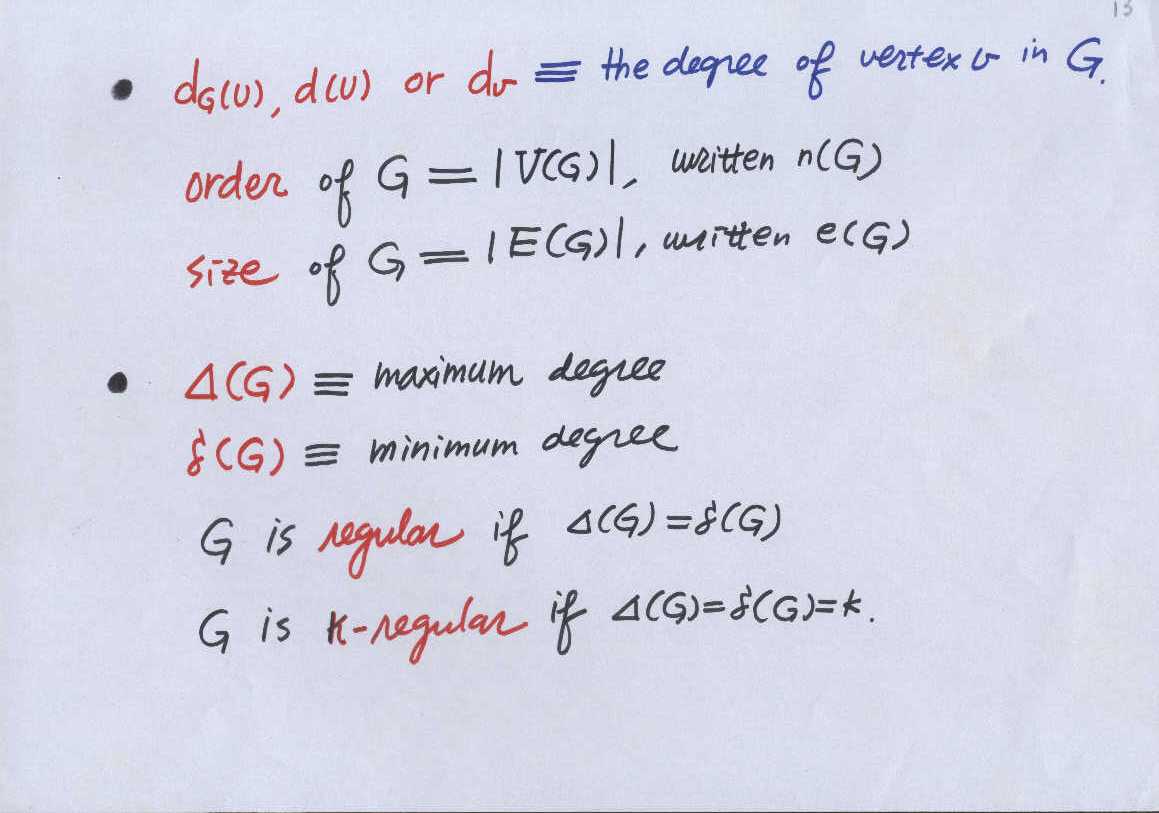 13
• d_G(v), d(v) or d_v ≡ the degree of vertex v in G.
order of G = |V(G)|, written n(G)
size of G = |E(G)|, written e(G)
• Δ(G) ≡ maximum degree
δ(G) ≡ minimum degree
G is regular if Δ(G) = δ(G)
G is k-regular if Δ(G) = δ(G) = k.